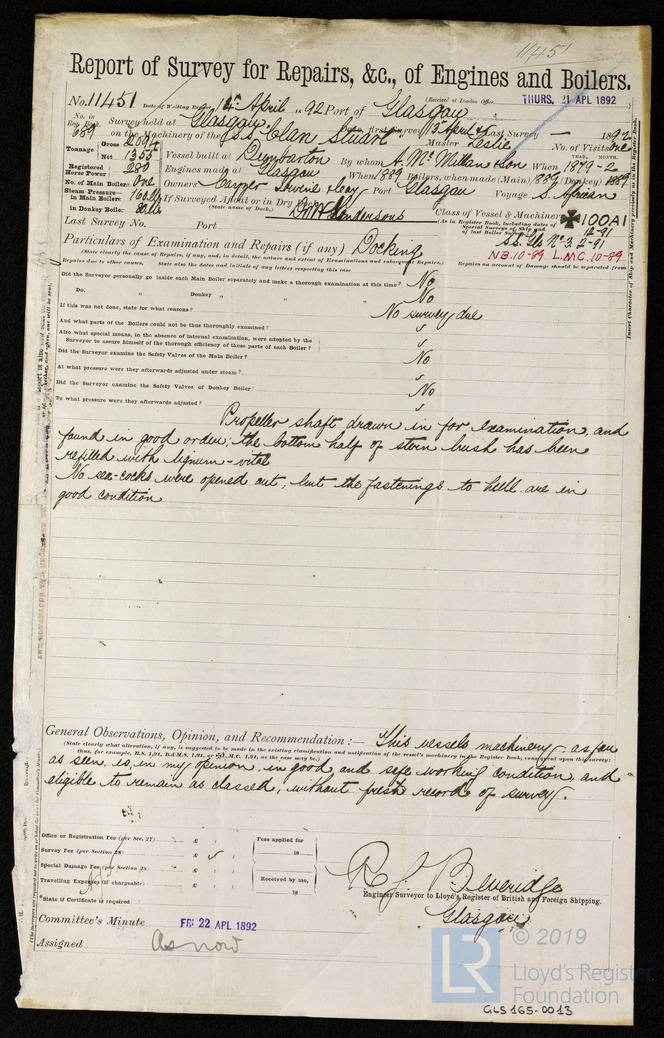 11451
Report of Survey for Repairs, &c., of Engines and Boilers.
No. 11451 Date of Writing Report 14th April 1892 Port of Glasgow (Received at London Office THURS. 21 APL 1892)
No. in Reg. Book 689 Survey held at Glasgow Date, first Survey 13 April Last Survey — 1892
on the Machinery of the S.S. "Clan Stuart" Master Leslie No. of Visits one
Tonnage Gross 2094 Net 1355 Vessel built at Dumbarton By whom A. McMillan & Son When 1879-2 YEAR. MONTH.
Registered Horse Power: 280 Engines made at Glasgow When 1889 Boilers, when made (Main) 1889 (Donkey) 1889
No. of Main Boilers: One Owners Cayzer Irvine & Coy Port Glasgow Voyage S. African
Steam Pressure in Main Boilers: 160 lbs If Surveyed Afloat or in Dry Dock D & W Hendersons Class of Vessel & Machinery 100A1
(State name of Dock.) (As in Register Book, including dates of Special Surveys of Ship and of last Boiler Survey) 12-91
in Donkey Boiler: 80 lbs
S.S. Gls No. 3. 2-91
Last Survey No. Port
N.B. 10-89 L.M.C. 10-89
Particulars of Examination and Repairs (if any) Docking
(State clearly the cause of Repairs, if any, and, in detail, the nature and extent of Examinations and subsequent Repairs.)
Repairs on account of Damage should be separated from
Repairs due to other causes. State also the dates and initials of any letters respecting this case
Did the Surveyor personally go inside each Main Boiler separately and make a thorough examination at this time? No
Do. " Donkey " " " No
If this was not done, state for what reasons? No survey due
And what parts of the Boilers could not be thus thoroughly examined?
Also what special means, in the absence of internal examination, were adopted by the
Surveyor to assure himself of the thorough efficiency of these parts of each Boiler?
Did the Surveyor examine the Safety Valves of the Main Boiler? No
At what pressure were they afterwards adjusted under steam?
Did the Surveyor examine the Safety Valves of Donkey Boiler? No
To what pressure were they afterwards adjusted?
Propeller shaft drawn in for examination, and
found in good order; the bottom half of stern bush has been
refilled with lignum-vitæ
No sea-cocks were opened out, but the fastenings to hull are in
good condition
General Observations, Opinion, and Recommendation:— This vessels machinery as far
(State clearly what alteration, if any, is suggested to be made in the existing classification and notification of the vessel's machinery in the Register Book, consequent upon this survey:
thus, for example, B.S. 1,91, B.&M.S. 1,91, or L.M.C. 1,91, as the case may be.)
as seen is, in my opinion, in good and safe working condition, and
eligible to remain as classed, without fresh record of survey.
Office or Registration Fee (per Sec. 27) £
Fees applied for
Survey Fee (per Section 28) £
18
Special Damage Fee (per Section 28) £
Received by me,
Travelling Expenses (if chargeable) £
18
*State if Certificate is required
R. J. Beveridge
Engineer Surveyor to Lloyd's Register of British and Foreign Shipping.
Glasgow
Committee's Minute FRI 22 APL 1892
Assigned As now
LR © 2019
Lloyd's Register
Foundation
GLS165-0013